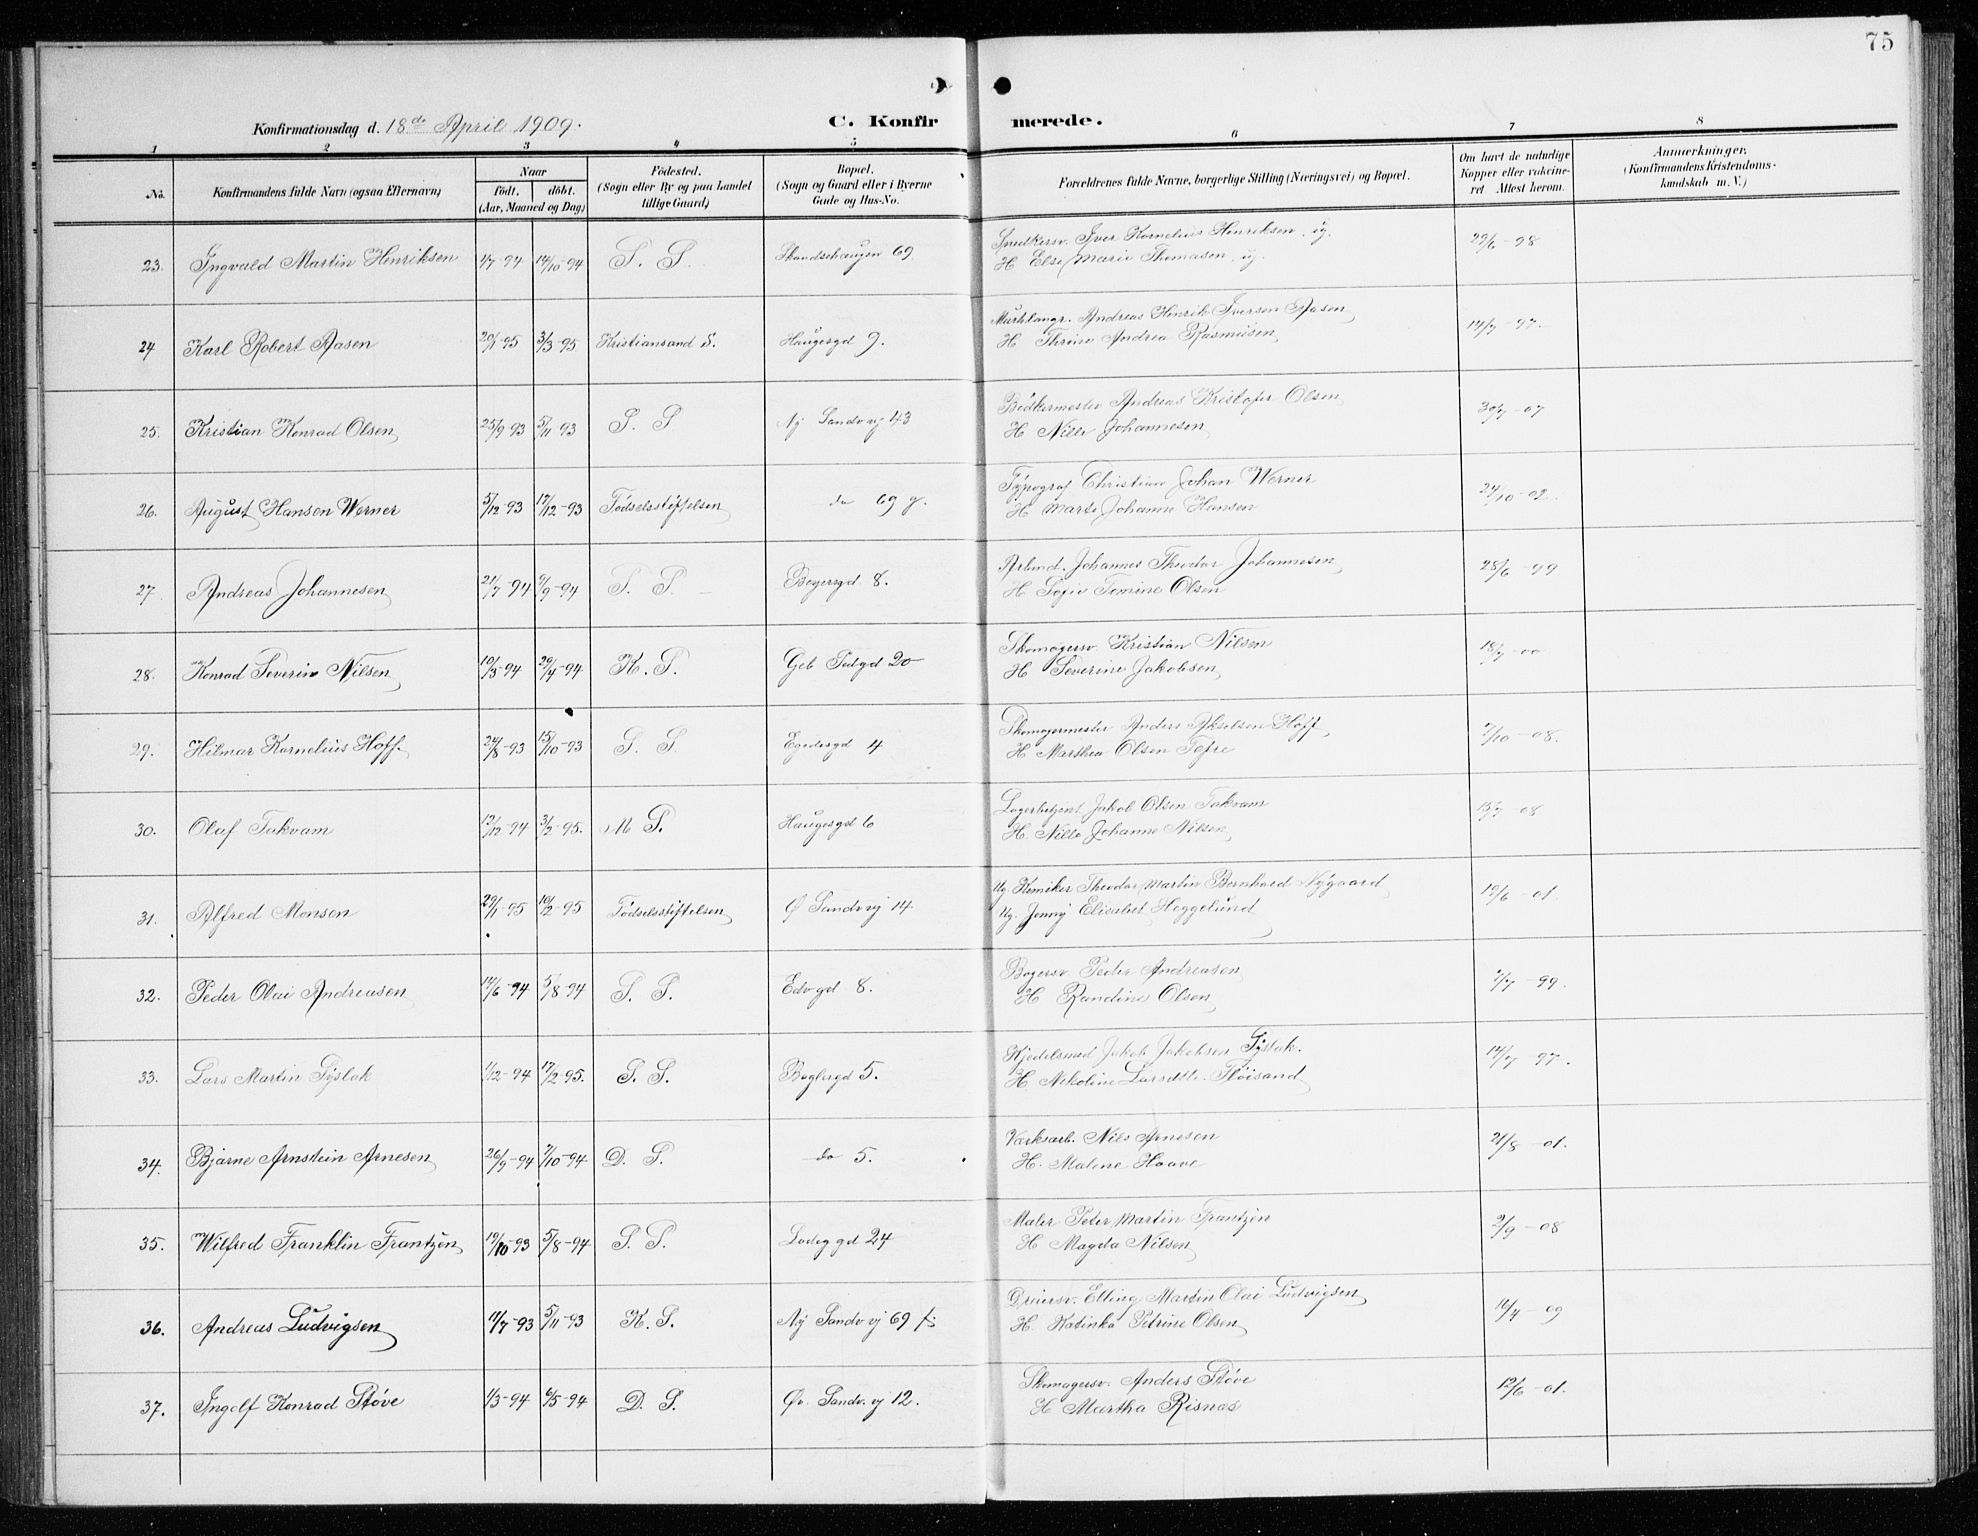 75
Konfirmationsdag d. 18de April 1909.
C. Konfirmerede.
1 2 3 4 5 6 7 8
No.
Konfirmandens fulde Navn (ogsaa Efternavn)
Naar
født. døbt.
(Aar, Maaned og Dag)
Fødested.
(Sogn eller By og paa Landet
tillige Gaard)
Bopæl.
(Sogn og Gaard eller i Byerne
Gade og Hus-No.
Forældrenes fulde Navne, borgerlige Stilling (Næringsvei) og Bopæl.
Om havt de naturlige
Kopper eller vakcine-
ret Attest herom.
Anmærkninger.
(Konfirmandens Kristendoms-
kundskab m. V.)
23. Ingvald Martin Henriksen 1/7-94 14/10-94 S. S. Skandsehaugen 69 Snedkersv. Iver Kornelius Henriksen, ug. 29/6-98
H Else Marie Thomasen, ug.
24 Karl Robert Aasen 20/1-95 3/3-95 Kristiansand S. Haugesgd 9. Murhlangr. Andreas Henrik Iversen Aasen 14/7-97.
H Thrine Andrea Rasmusen
25. Kristian Konrad Olsen 25/9 93 5/11 93 S. S Ny Sandv vj 43 Bødkermester Andreas Kristofer Olsen 30/7-07
H Nille Johannesen
26. August Hansen Werner 5/12-93 17/12-93 Fødselsstiftelsen do 69 g. Typograf Christian Johan Werner 27/10-02.
H Marte Johanne Hansen
27. Andreas Johannesen 21/7-94 9/9-94 S. S. Beyersgd 8. Arbmd. Johannes Theodor Johannesen 28/6-99
H Sofie Tomine Olsen
28. Konrad Severin Nilsen 10/3-94 29/4-94 K. S. Geb Pedgd 20 Skomagersv Kristian Nilsen 18/7-00
H Severine Jakobsen
29. Hilmar Kornelius Hoff. 24/8-93 15/10-93 S. S. Egedesgd 4 Skomagermester Anders Akselsen Hoff 7/10-08.
H Marthea Olsen Tofre
30. Olaf Takvam 12/12-94 3/2-95. M S. Haugesgd 6 Lagerbetjent Jakob Olsen Takvam 13/7-08
H. Nille Johanne Nilsen
31. Alfred Monsen 29/1-95 10/2-95 Fødselsstiftelsen Ø Sandv vj 14 Ug. Kemiker Theodor Martin Bernhard Nygaard 19/6-01.
Ug. Jenny Elisabet Heggelund
32. Peder Olai Andreasen 14/6-94 5/8-94 S. S. Edvgd 8. Bøgersv. Peder Andreasen 7/7-99
H Randine Olsen
33. Lars Martin Tyslak 1/12-94 17/2-95. S. S. Boglergd 5. Kjedelsmed Jakob Jakobsen Tyslak. 14/7-97.
H. Nekoline Larsdtr. Fløisand
34. Bjarne Arnstein Arnesen 26/9-94 7/10-94 D. S. do 5. Værksarb. Nils Arnesen 21/8-01.
H. Malene Haave
35. Wilfred Franklin Frantzen 19/10-93 5/8-94 S. S. Ladeggd 24 Maler Peter Martin Frantzen 2/9-08
H Magda Nilsen
36. Andreas Ludvigsen 11/7-93 5/11-93 K. S. Ny Sandv vj 69 f. Dreiersv. Elling Martin Olai Ludvigsen 16/4-09
H. Katinka Petrine Olsen
37. Ingolf Konrad Støve 1/3-94 6/5-94 D. S. Øv. Sandv. vj 12. Skomagersv. Anders Støve 12/6-01.
H Martha Risnæs